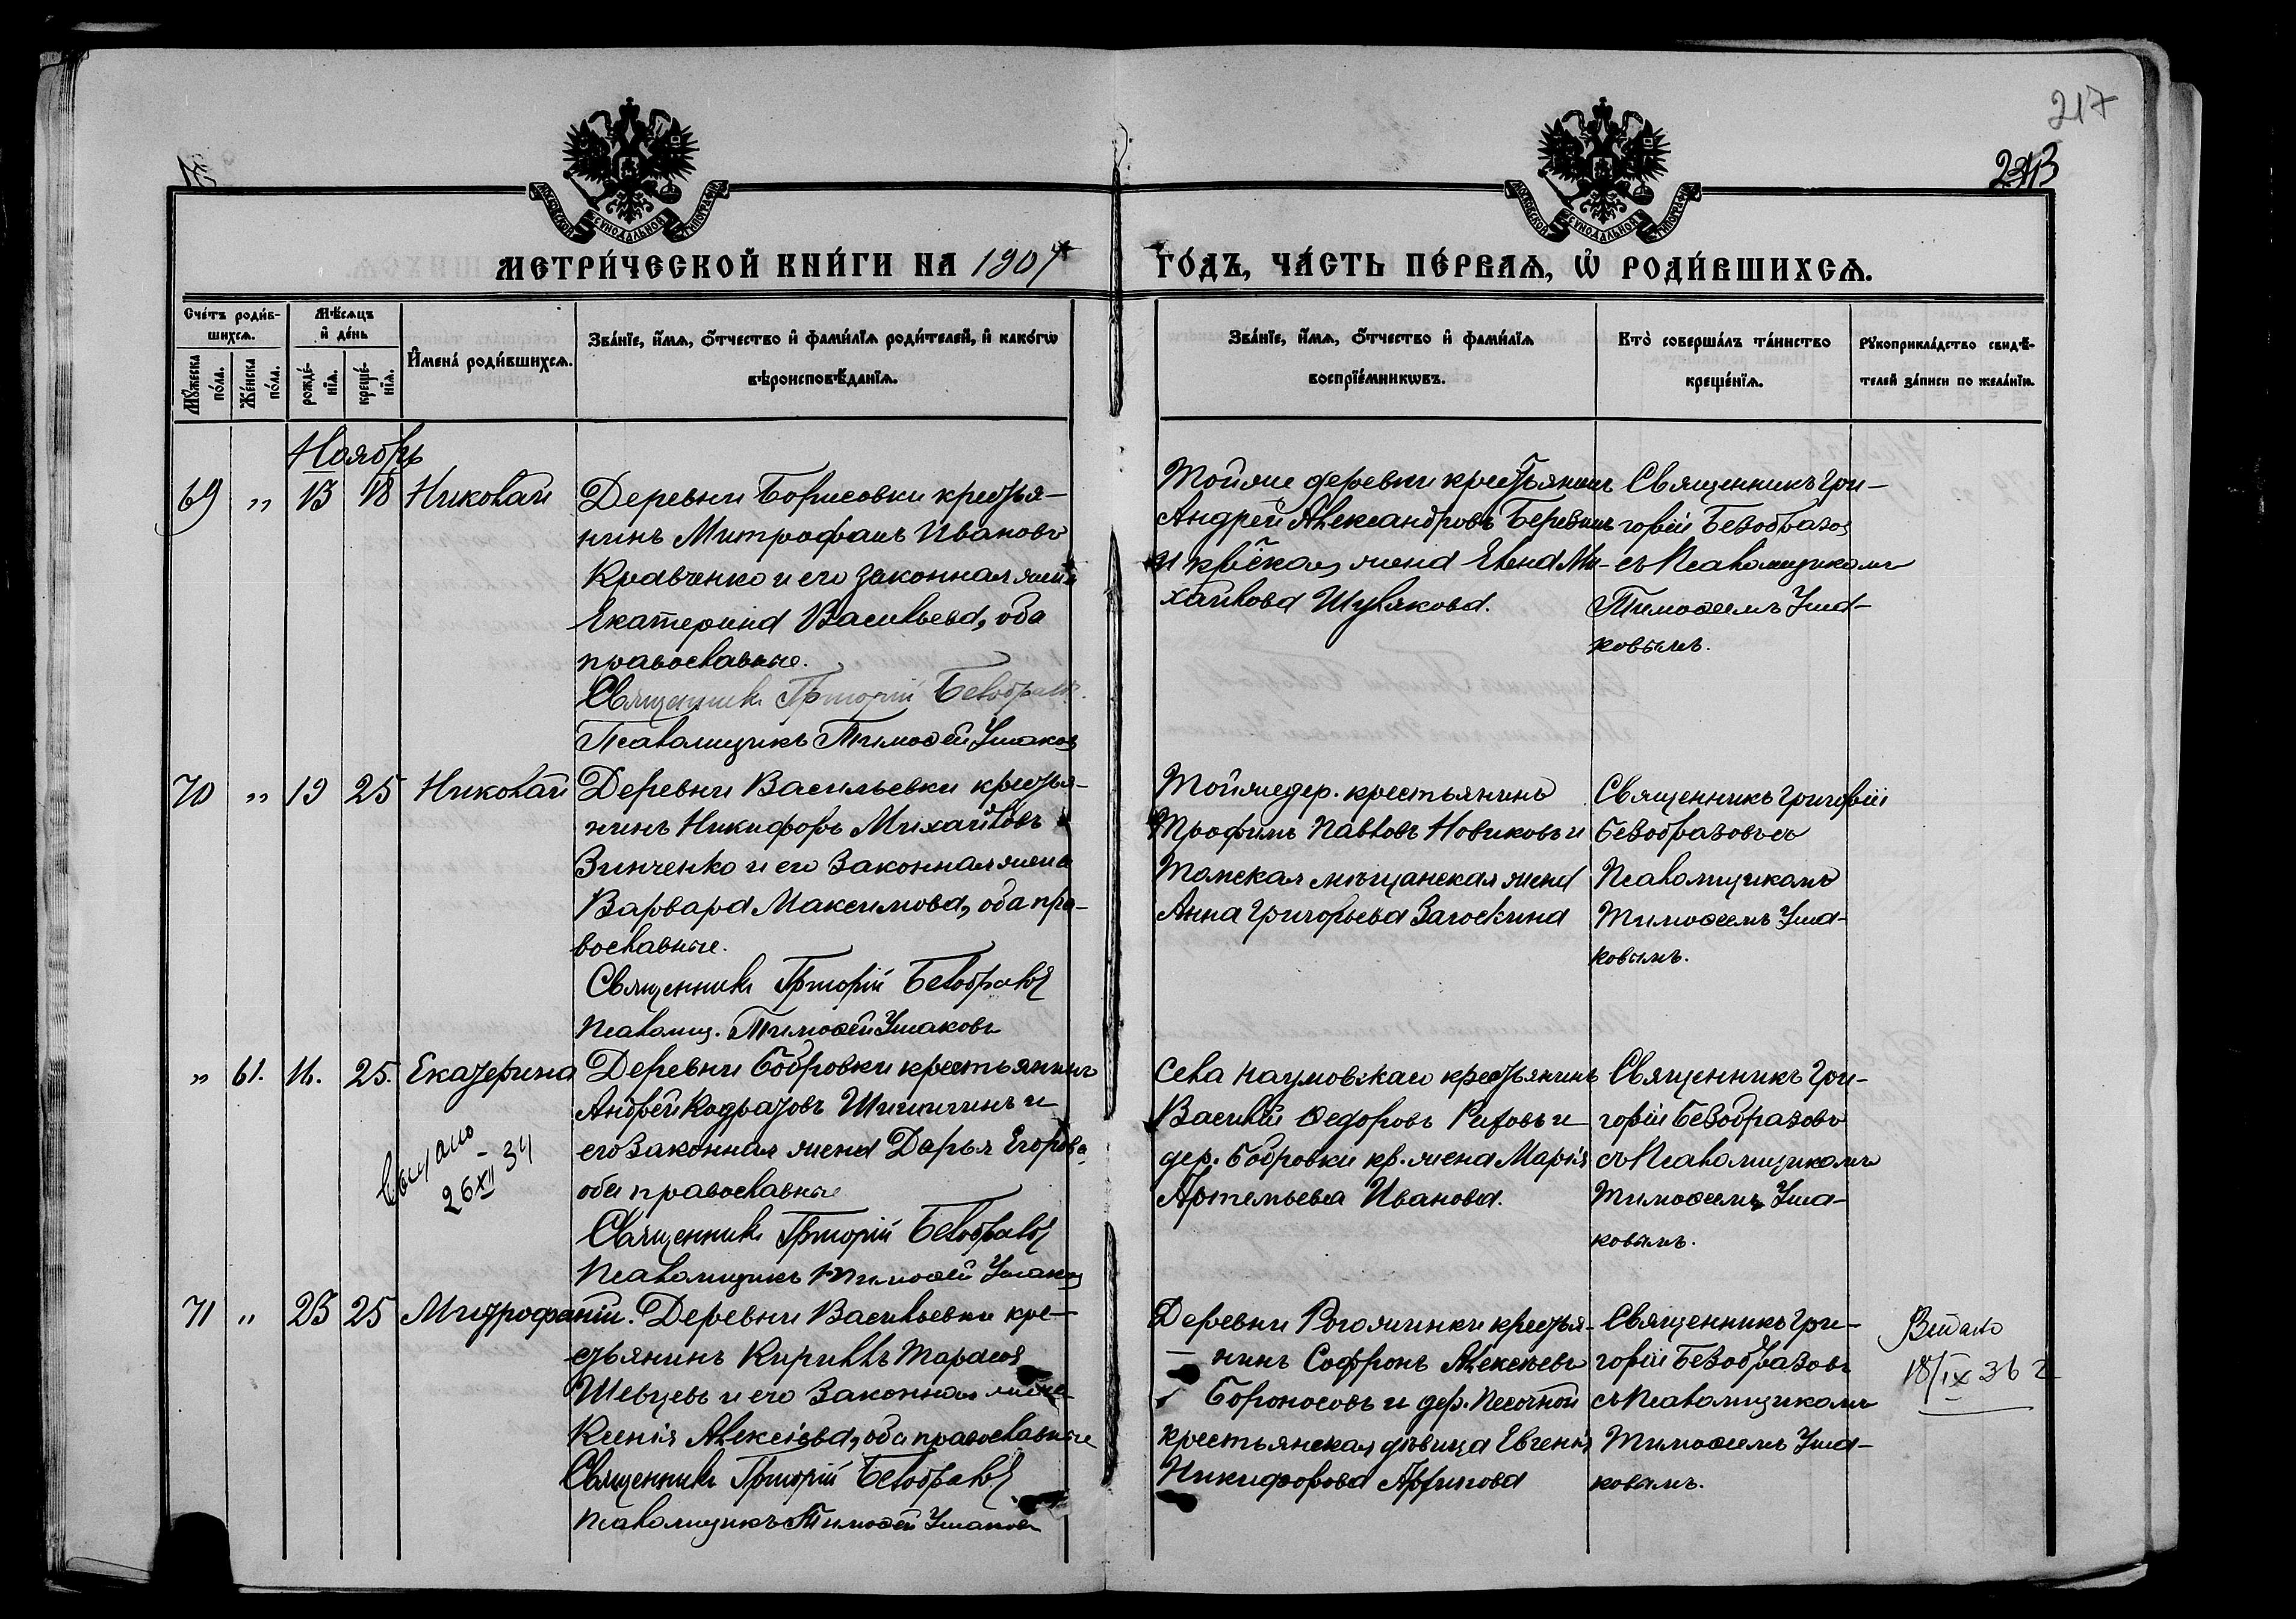 217
243
МОСКОВСКОЙ СУНОДАЛЬНОЙ ТИПОГРАФІИ
МОСКОВСКОЙ СУНОДАЛЬНОЙ ТИПОГРАФІИ
МЕТРИ́ЧЕСКОЙ КНИ́ГИ НА 1907
ГО́ДЪ, ЧА́СТЬ ПЕ́РВАѦ, Ѡ҆ РОДИ́ВШИХСѦ.
Сче́тъ роди́в-
шихсѧ.
Мꙋ́жеска по́ла.
Же́нска по́ла.
Мѣ́сѧцъ
и҆ де́нь
рожде́-
нїѧ.
креще́-
нїѧ.
И҆мена̀ роди́вшихсѧ.
Зва́нїе, и҆́мѧ, ѻ҆́тчество и҆ фами́лїѧ роди́телей, и҆ како́гѡ
вѣроисповѣ́данїѧ.
Зва́нїе, и҆́мѧ, ѻ҆́тчество и҆ фами́лїѧ
воспрїе́мникѡвъ.
Кто̀ соверша́лъ та́инство
креще́нїѧ.
Рꙋкоприкла́дство свидѣ́-
телей за́писи по жела́нїю.
Ноябрь
69 „ 13 18 Николай
Деревни Борисовки крестья-
нинъ Митрофанъ Ивановъ
Кравченко и его законная жена
Екатерина Васильева, оба
православные.
Священникъ Григорій Безобразовъ
Псаломщикъ Тимоѳей Ушаковъ
Тойже деревни крестьянинъ
Андрей Александровъ
и жена Елена Ми-
хайлова Шулякова.
Священникъ Гри-
горій Безобразовъ
съ Псаломщикомъ
Тимоѳеемъ Уша-
ковымъ.
70 „ 19 25 Николай
Деревни Васильевки крестья-
нинъ Никифоръ Михайловъ
Зинченко и его законная жена
Варвара Максимова, оба пра-
вославные.
Священникъ Григорій Безобразовъ
Псаломщ. Тимоѳей Ушаковъ
Тойже дер. крестьянинъ
Трофимъ Павловъ Новиковъ и
Томская мѣщанская жена
Анна Григорьева Загоскина
Священникъ Григорій
Безобразовъ съ
Псаломщикомъ
Тимоѳеемъ Уша-
ковымъ.
„ 61. 16. 25. Екатерина
Выдано
26 XII 34
Деревни Бобровки крестьянинъ
Андрей Кодратовъ Шишигинъ и
его законная жена Дарья Егорова,
оба православные
Священникъ Григорій Безобразовъ
Псаломщикъ Тимоѳей Ушаковъ
Села Наумовскаго крестьянинъ
Василій Ѳедоровъ и
дер. Бобровки кр. жена Марія
Артемьева Иванова.
Священникъ Гри-
горій Безобразовъ
съ Псаломщикомъ
Тимоѳеемъ Уша-
ковымъ.
71 „ 23 25 Митрофаній.
Деревни Васильевки кре-
стьянинъ Кириллъ Тарасовъ
Шевцевъ и его законная жена
Ксенія Алексіева, оба православные
Священникъ Григорій Безобразовъ
Псаломщикъ Тимоѳей Ушаковъ
Деревни крестья-
нинъ Софронъ Алексѣевъ
Бороносовъ и дер. Песочной
крестьянская дѣвица Евгенія
Никифорова
Священникъ Гри-
горій Безобразовъ
съ Псаломщикомъ
Тимоѳеемъ Уша-
ковымъ.
Выдано
18/IX 36 г.